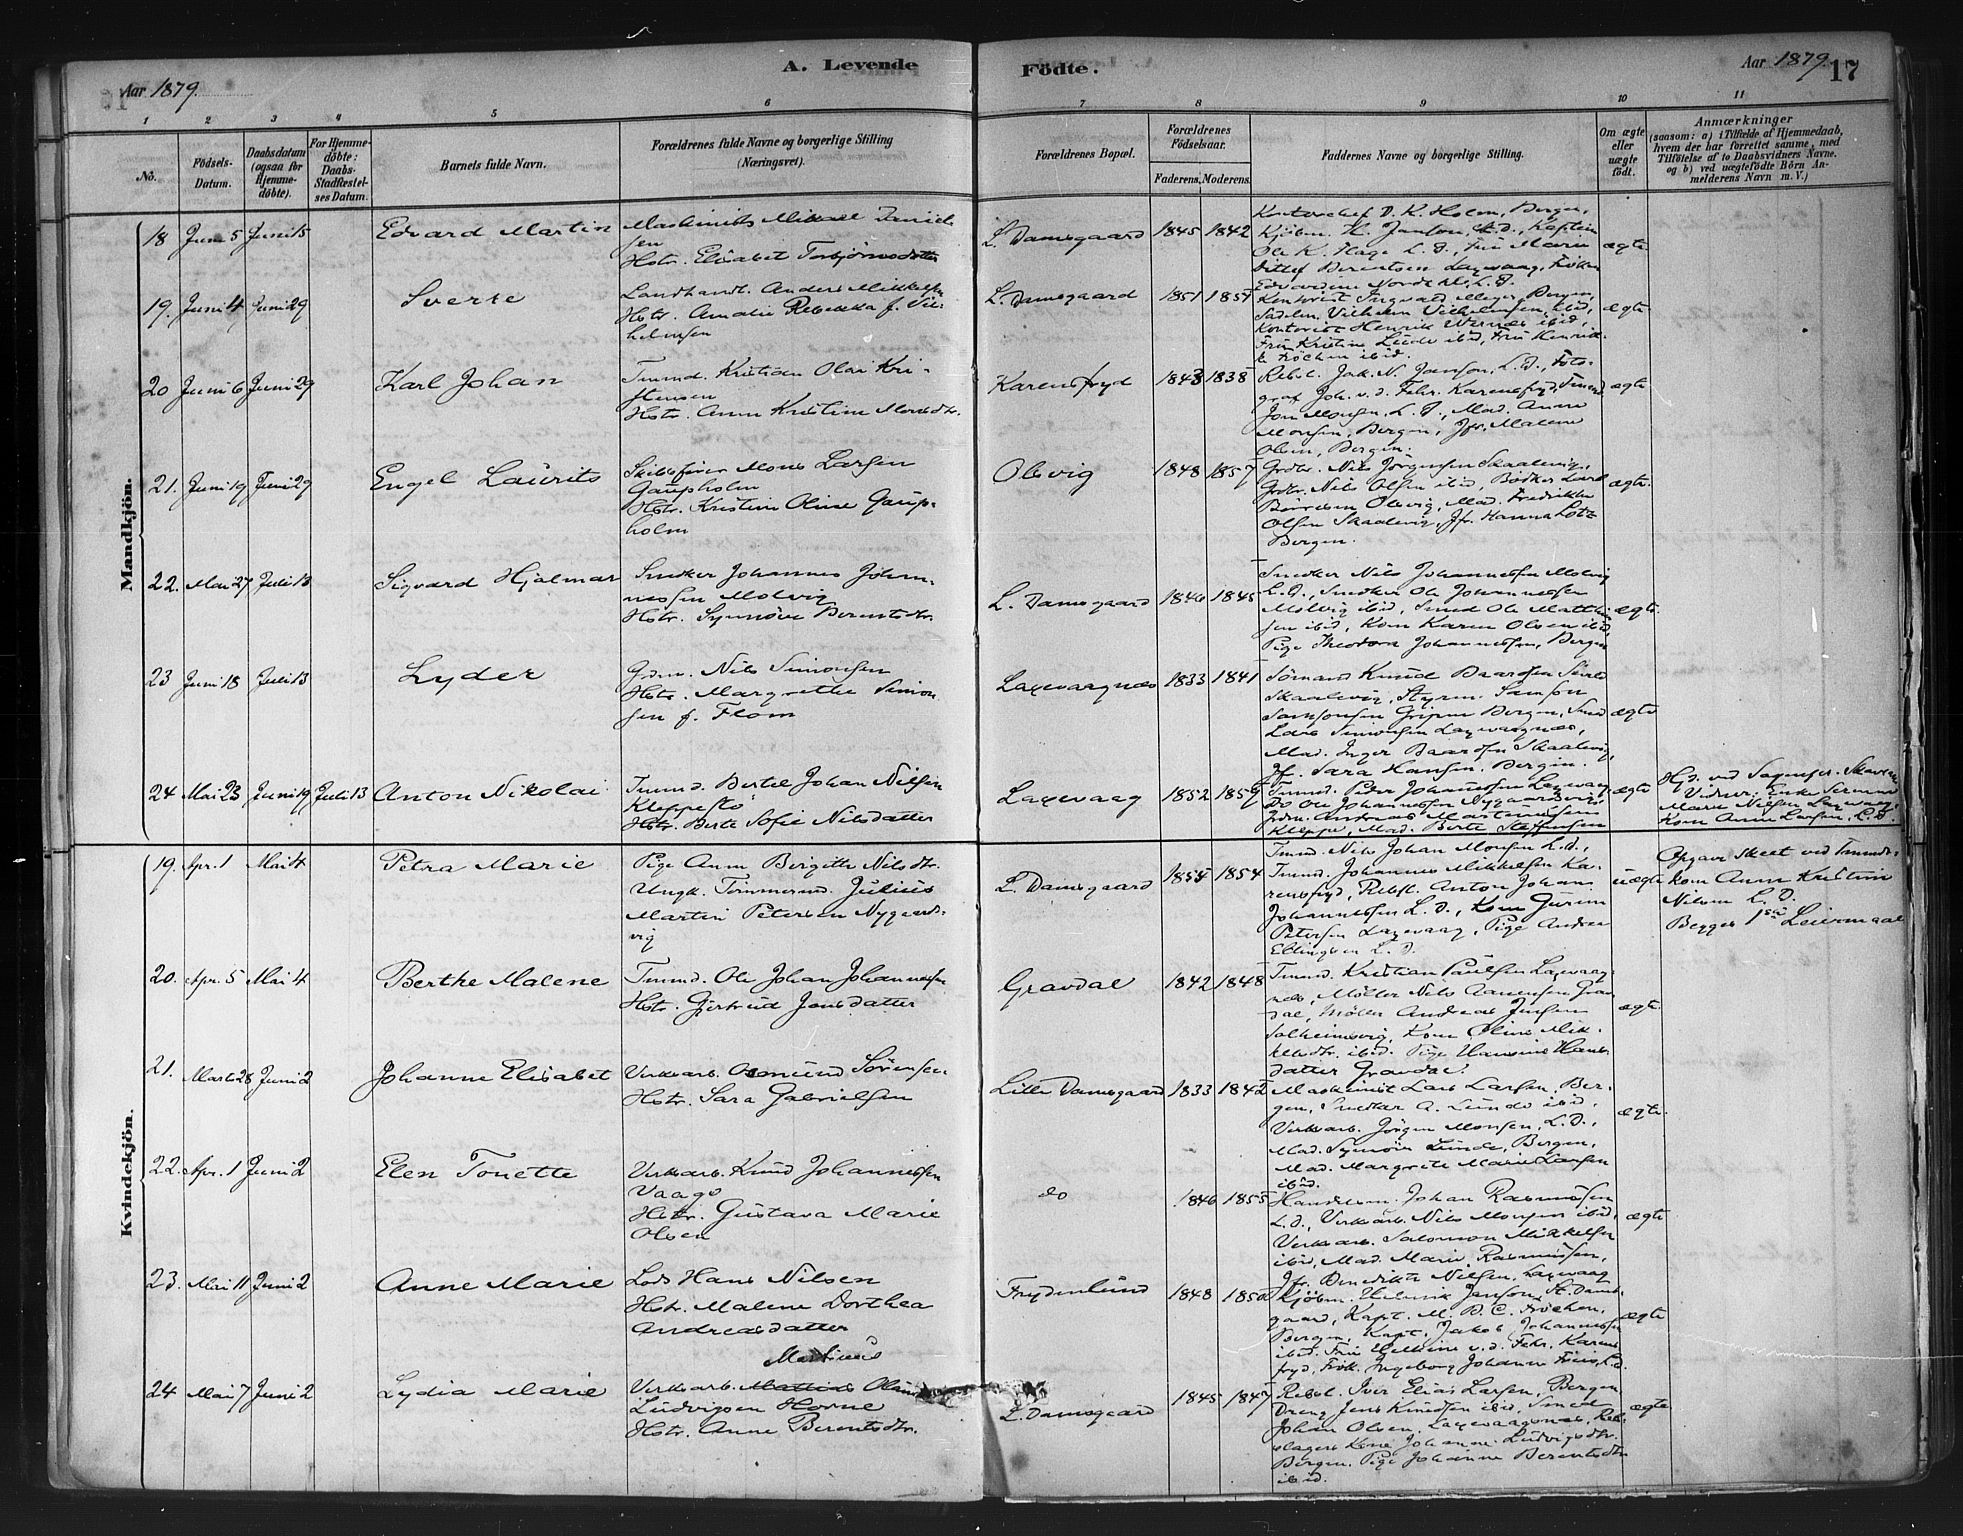 Aar 1879.
A. Levende
Födte.
Aar 1879. 17
1 2 3 4 5 6 7 8 9 10 11
No.
Födsels-Datum.
Daabsdatum (ogsaa for Hjemme-döbte).
For Hjemme-döbte: Daabs-Stadfæstel-ses Datum.
Barnets fulde Navn.
Forældrenes fulde Navne og borgerlige Stilling (Næringsvei).
Forældrenes Bopæl.
Forældrenes Födselsaar.
Faderens. Moderens.
Faddernes Navne og borgerlige Stilling.
Om ægte eller uægte födt.
Anmærkninger
(saasom: a) i Tilfælde af Hjemmedaab, hvem der har forrettet samme, med Tilföielse af to Daabsvidners Navne. og b) ved uægtefödte Börn Anmelderens Navn m. V.)
Mandkjön.
18 Juni 5 Juni 15 Edvard Martin
Maskinist Mikael Daniel-
sen
Hstr. Elisabet Torbjörnsdatter
L. Damsgaard 1845 1842
Kontorchef D. K. Holm, Bergen,
Kjöbm. H. Janson, L.D., Kaptein
Ole K. Hage L. D., Frü Marie
Ditlef Berentsen Laxevaag, Fröken
Edvardine Nordahl, L.D.
ægte
19. Juni 4 Juni 29 Sverre
Landhandl. Anders Mikkelsen
Hstr. Amalie Rebekka f. Vil-
helmsen
L. Damsgaard 1851 1851
Kontorist Ingvald Meyer, Bergen,
Sadelm. Vilhelm Vilhelmsen, ibid,
Kontorist Henrik Wernæs ibid,
Frü Kristine Lunde ibid, Frü Henrik-
ke Fröchen ibid.
ægte
20 Juni 6 Juni 29 Karl Johan
Tmmd. Kristian Olai Kri-
stensen
Hstr. Anne Kristine Monsdtr.
Karensfryd 1843 1838
Rebsl. Jak. N. Janson, L. D., Foto-
graf Joh. v. d. Fehr. Karensfryd, Tmmd
Jon Monsen, L. D., Mad. Anne
Monsen, Bergen, Jfr. Malene
Olsen, Bergen.
ægte
21. Juni 19 Juni 29 Engel Laurits
Skibsförer Mons Larsen
Gaupholm
Hstr. Kristine Oline Gaup-
holm
Olsvig 1848 1857
Grdbr. Nils Jörgensen Skaalevig,
Grdbr. Nils Olsen ibid, Bödker Lars
Börresen Olsvig, Mad. Fredrikke
Olsen Skaalevig, Jfr. Hanna Lotz
Bergen.
ægte
22. Mai 27 Juli 13 Sigvard Hjalmar
Snedker Johannes Johan-
nessen Molvig
Hstr. Synnöve Berentsdtr.
L. Damsgaard 1846 1845
Snedker Nils Johannessen Molvig
L. D., Snedker Ole Johannessen
Molvig ibid, Smed Ole Mathi-
sen ibid, Kone Karen Olsen ibid,
Pige Theodora Johannessen, Bergen
ægte.
23 Juni 18 Juli 13 Lyder
Grdm. Nils Simonsen
Hstr. Margrethe Simon-
sen f. Flom
Laxevaagnæs 1833 1841
Sömand Knud Baardsen
Skaalevig, Styrm. Samson
Samsonsen Bergen, Smed
Lars Simonsen Laxevaagnæs,
Mad. Inger Baardsen Skaalevig,
Jfr. Sara Hansen. Bergen.
ægte
24 Mai 23 Juni 19 Juli 13 Anton Nikolai
Tmmd. Bertel Johan Nilsen
Kleppestö
Hstr. Berte Sofie Nilsdatter
Laxevaag 1852 1859
Tmmd. Peder Johannessen Laxevaag,
Do Ole Johannessen Nygaardsvig,
Grdm. Andreas Martinussen
Kleppe, Mad. Berte Steffensen
ægte
Hjd. ved Sognepr.
Vidner: Enke
Marie Nilsen Laxevaag,
Kone Anne Larsen, L.D.
Kvindekjön.
19. Apr. 1 Mai 4 Petra Marie
Pige Anne Bergitte Nilsdtr.
Ungk. Tömmermd. Julius
Martin Petersen Nygaards-
vig
L. Damsgaard 1855 1854
Tmmd. Nils Johan Monsen L.D.,
Tmmd. Johannes Mikkelsen Ka-
rensfryd, Rebsl. Anton Johan
Johannessen L. D., Kone Guren
Petersen Laxevaag, Pige Andrea
Ellingsen L. D.
uægte
Opgave skeet ved Tmmds.
kone Anne Kristine
Nilsen L. D.
Begges 1ste Leiermaal
20. Apr. 5 Mai 4 Berthe Malene
Tmmd. Ole Johan Johannessen
Hstr. Gjertrud Jonsdatter
Gravdal 1842 1848
Tmmd. Kristian Paulsen Laxevaag-
næs, Möller Nils Aanensen Grav-
dal, Möller Andreas Jensen
Solheimsvig, Kone Oline Mik-
kelsdtr. ibid. Pige Hansine Hans-
datter Gravdal.
ægte
21. Marts 28 Juni 2 Johanne Elisabet
Verksarb. Osmund Sörensen
Hstr. Sara Gabrielsen
Lille Damsgaard 1833 1842
Maskinist Lars Larsen, Ber-
gen, Snedker A. Lunde ibid,
Verksarb. Jörgen Monsen, L. D.,
Mad. Synnöve Lunde, Bergen,
Mad. Margrete Marie Larsen
ibid.
ægte.
22. Apr. 1 Juni 2 Elen Tonette
Verksarb. Knud Johannessen
Vaage
Hstr. Gustava Marie
Olsen
do 1846 1855
Handelsm. Johan Rasmussen
L. D., Verksarb. Nils Monsen ibid,
Verksarb. Salomon Mikkelsen
ibid, Mad. Marie Rasmussen,
Jfr. Benedikte Nielsen, Laxevaag
ægte
23. Mai 11 Juni 2 Anne Marie
Lods Hans Nilsen
Hstr. Malene Dorthea
Andreasdatter
Frydenlund 1848 1850
Kjöbm. Henrik Janson, St. Dams-
gaard, Kapt. M. B. C. Fröchen,
Bergen, Kapt. Jakob Johannessen
ibid. Frü Helene v. d. Fehr. Karens-
fryd, Frök. Ingeborg Johanne Friis, L.D.
ægte
24 Mai 7 Juni 2 Lydia Marie
Martinus
Verksarb. Mathias Olaus
Ludvigsen Horne
Hstr. Anne Berentsdtr.
L. Damsgaard 1845 1847
Rebsl. Iver Elias Larsen, Bergen
Dreng Jens Knudsen ibid, Smed
Johan Olsen, Laxevaagsnæs, Reb-
slagers Kone Johanne Ludvigsdtr.
Bergen. Pige Johanne Berentsdtr
ibid.
ægte